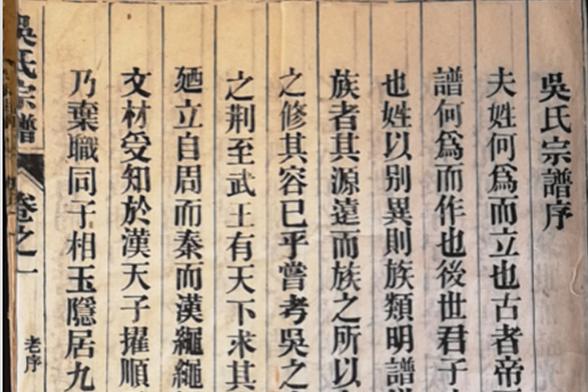 吳氏宗譜序
夫姓何爲而立也古者帝
譜何爲而作也後世君子
也姓以别異則族類明譜
族者其源遠而族之所以
之修其容已乎嘗考吳之
之荆至武王有天下求其
廼立自周而秦而漢繩繩
文材受知於漢天子擢順
乃棄職同子相玉隱居九
吳氏宗譜
卷之一
老序